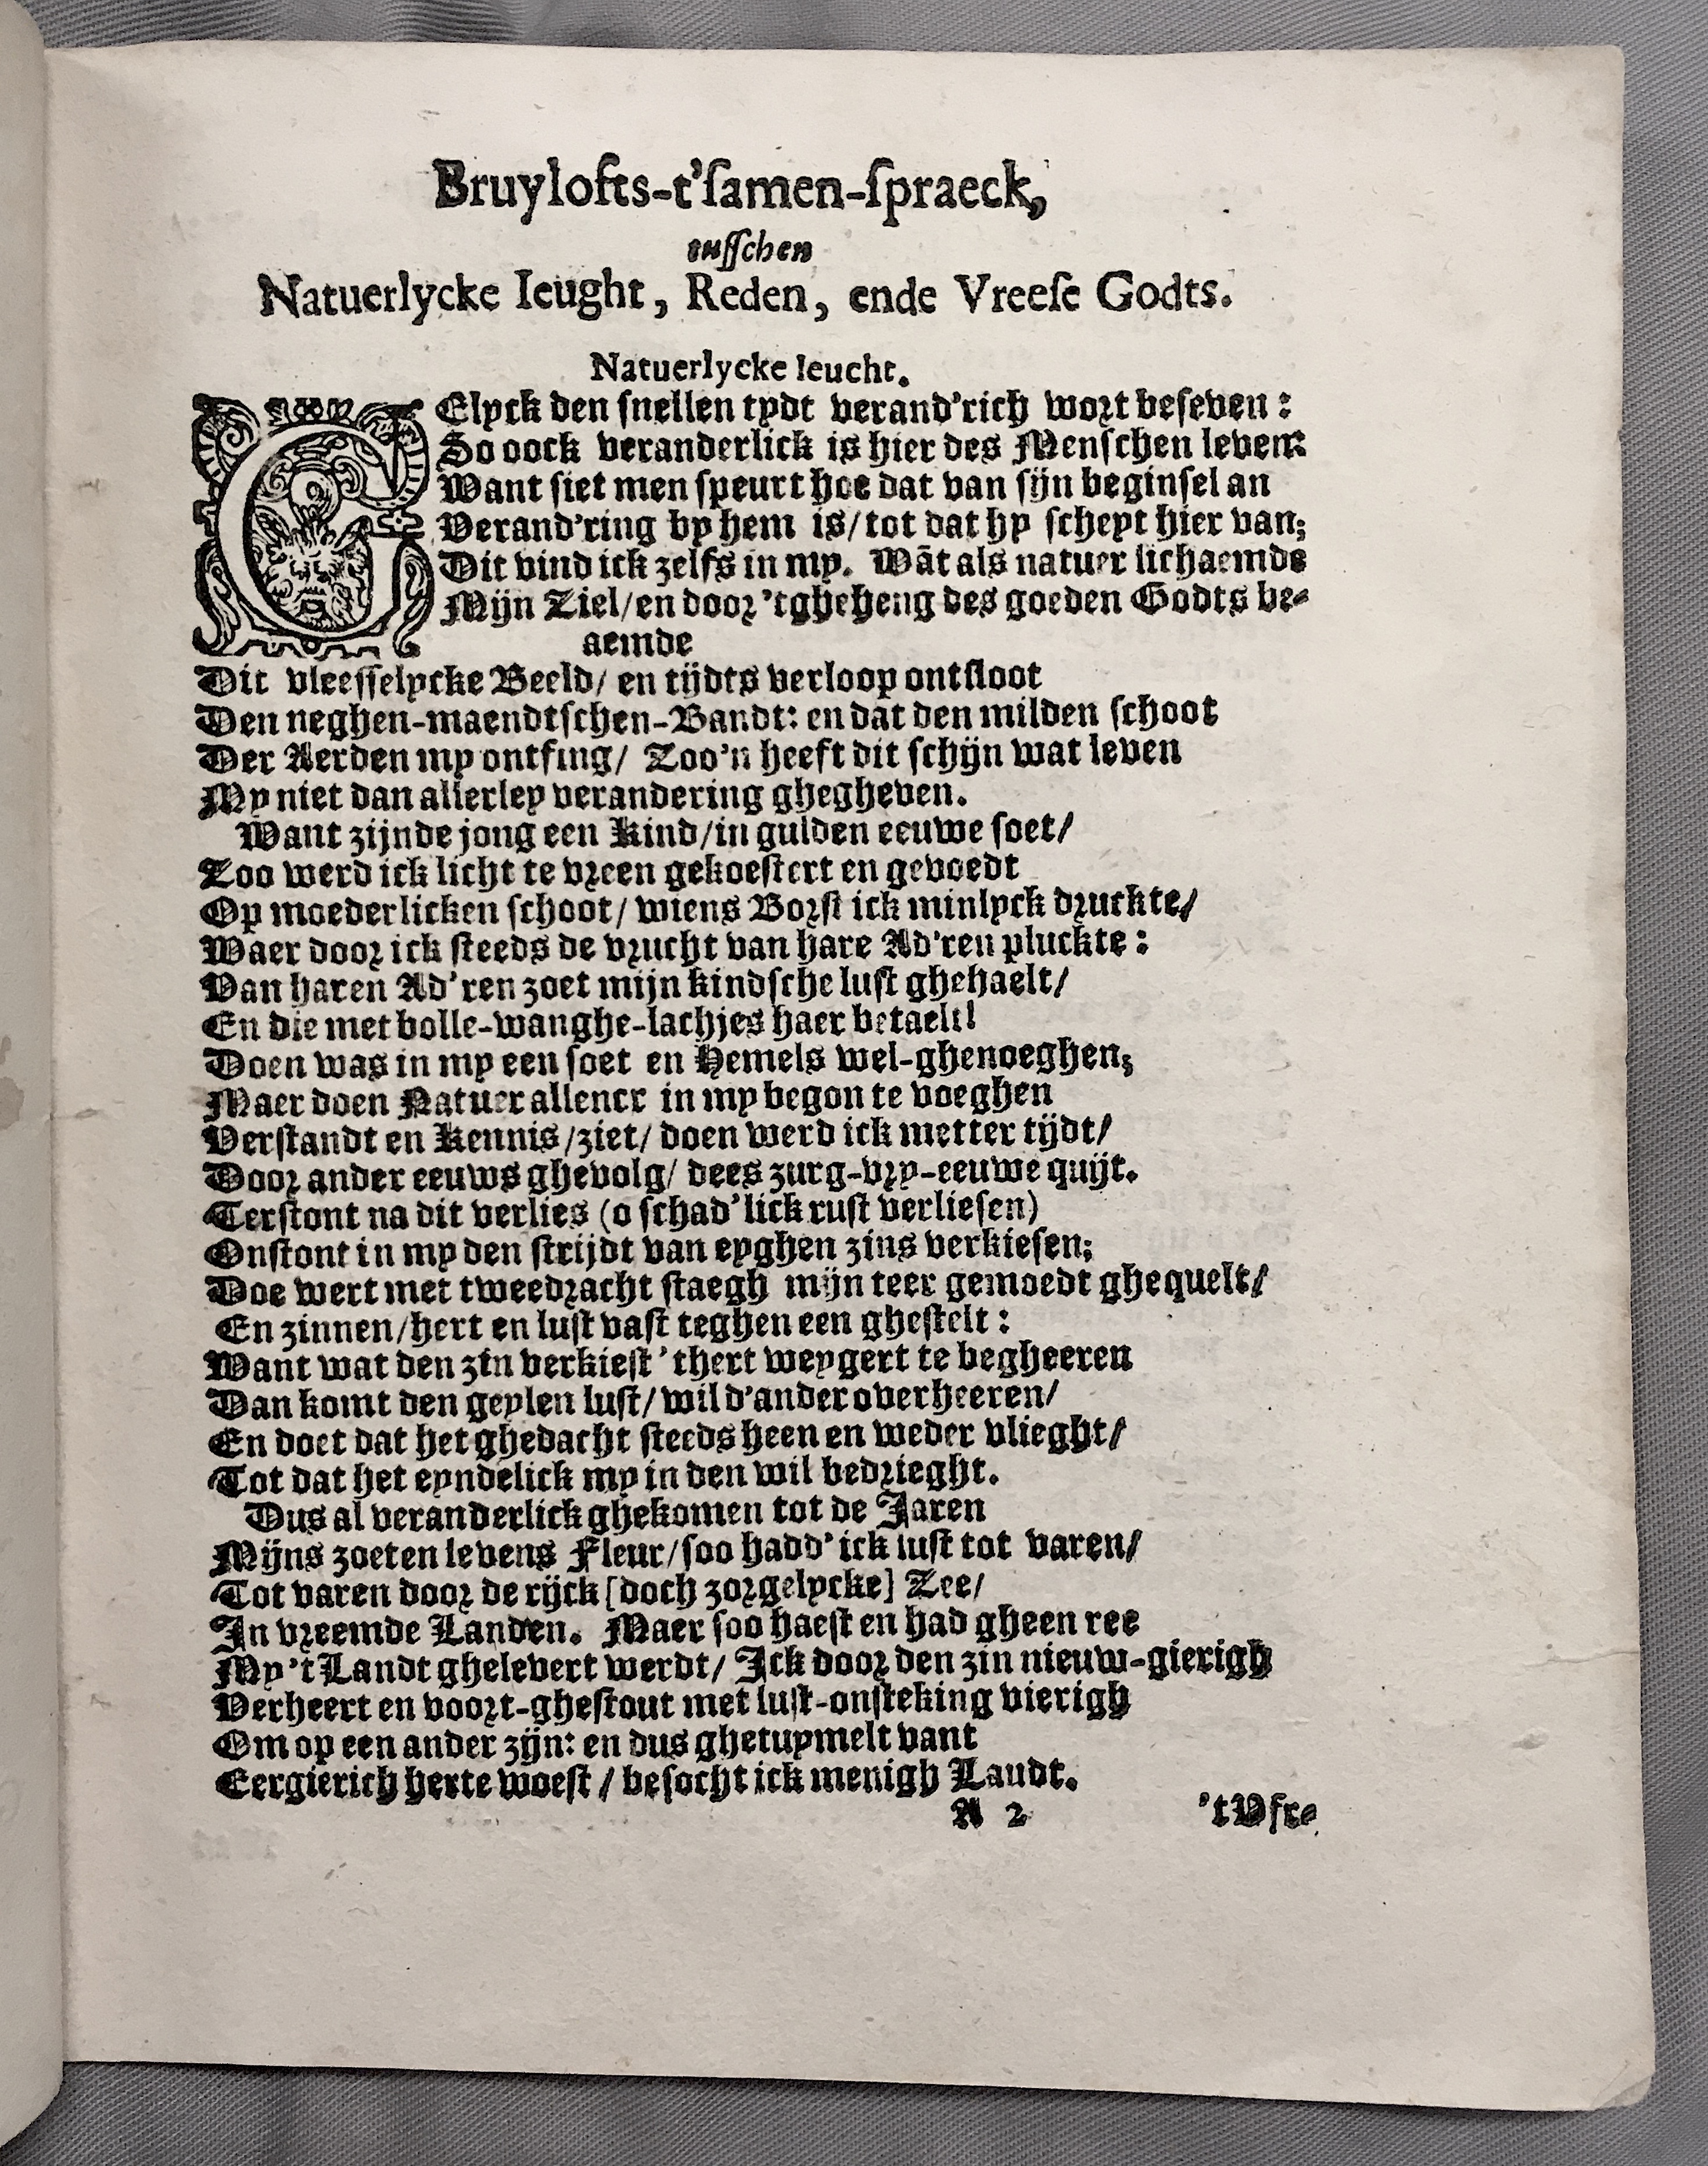 Bruylofts-t'ſamen-ſpraeck,
tuſſchen
Natuerlycke Ieught, Reden, ende Vreeſe Godts.
Natuerlycke Ieucht.
GElyck den ſnellen tydt verand'rich wort beſeven :
So oock veranderlick is hier des Menſchen leven:
Want ſiet men ſpeurt hoe dat van ſijn beginſel an
Verand'ring by hem is/ tot dat hy ſcheyt hier van;
Dit vind ick zelfs in my. Wāt als natuer lichaemde
Mijn Ziel/ en door 'tgheheng des goeden Godts be-
aemde
Dit vleeſſelycke Beeld/ en tijdts verloop ontſloot
Den neghen-maendtſchen-Bandt: en dat den milden ſchoot
Der Aerden my ontfing/ Zoo'n heeft dit ſchijn wat leven
My niet dan allerley verandering ghegheven.
Want zijnde jong een Kind/ in gulden eeuwe ſoet/
Zoo werd ick licht te vreen gekoeſtert en gevoedt
Op moederlicken ſchoot/ wiens Borſt ick minlyck druckte/
Waer door ick ſteeds de vrucht van hare Ad'ren pluckte :
Van haren Ad'ren zoet mijn kindſche luſt ghehaelt/
En die met bolle-wanghe-lachjes haer betaelt!
Doen was in my een ſoet en Hemels wel-ghenoeghen;
Maer doen Natuer allencx in my begon te voeghen
Verſtandt en Kennis/ ziet/ doen werd ick metter tijdt/
Door ander eeuws ghevolg/ dees zurg-vry-eeuwe quijt.
Terſtont na dit verlies (o ſchad'lick ruſt verlieſen)
Onſtont in my den ſtrijdt van eyghen zins verkieſen;
Doe wert met tweedracht ſtaegh mijn teer gemoedt ghequelt/
En zinnen/ hert en luſt vaſt teghen een gheſtelt :
Want wat den zin verkieſt 'thert weygert te begheeren
Dan komt den geylen luſt/ wil d'ander overheeren/
En doet dat het ghedacht ſteeds heen en weder vlieght/
Tot dat het eyndelick my in den wil bedrieght.
Dus al veranderlick ghekomen tot de Jaren
Mijns zoeten levens Fleur/ ſoo hadd' ick luſt tot varen/
Tot varen door de rijck [doch zorgelycke] Zee/
In vreemde Landen. Maer ſoo haeſt en had gheen ree
My 't Landt ghelevert werdt/ Ick door den zin nieuw-gierigh
Verheert en voort-gheſtout met luſt-onſteking vierigh
Om op een ander zijn: en dus ghetuymelt vant
Eergierich herte woeſt / beſocht ick menigh Laudt.
A 2 'tVſre-